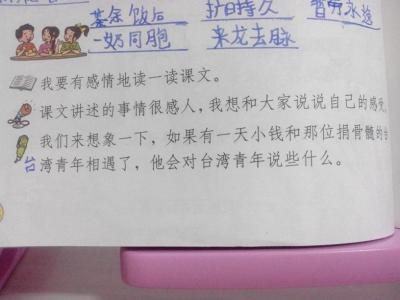 茶余饭后
一奶同胞 来龙去脉
我要有感情地读一读课文。
课文讲述的事情很感人,我想和大家说说自己的感受
我们来想象一下,如果有一天小钱和那位捐骨髓的台
台湾青年相遇了,他会对台湾青年说些什么。